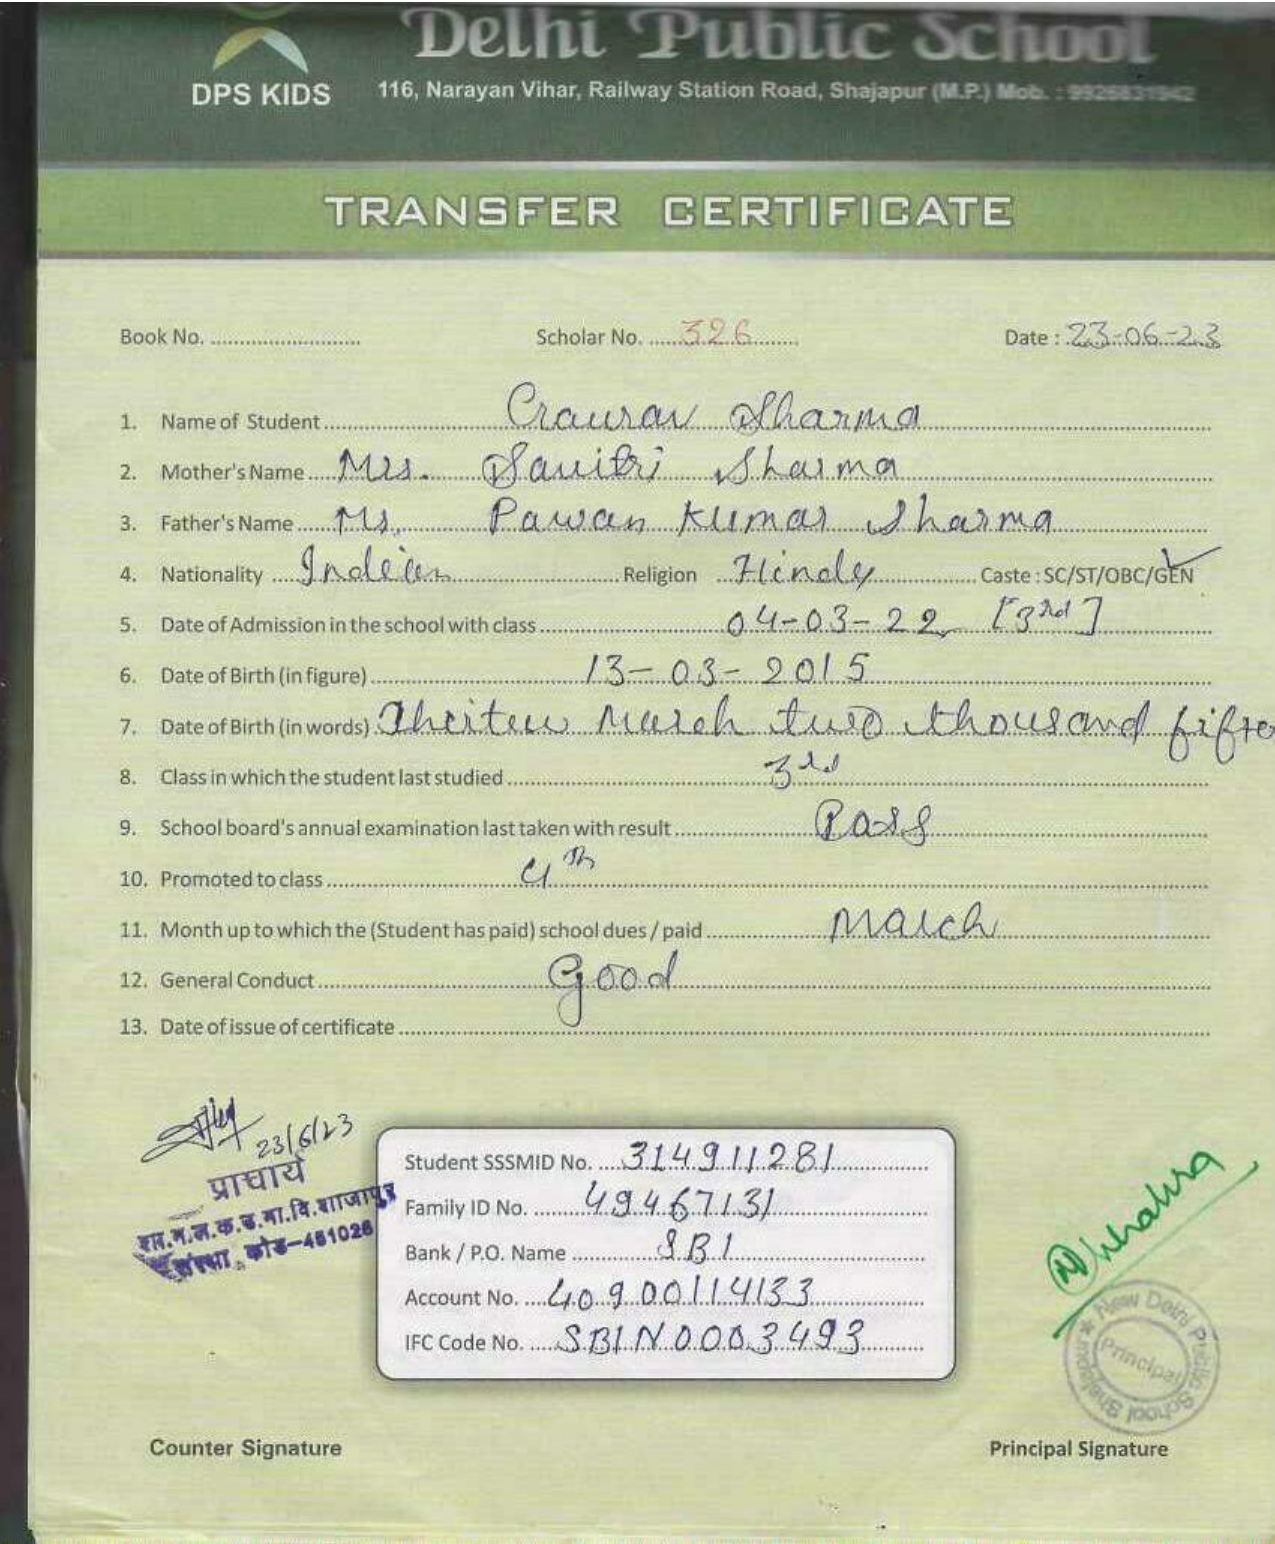 Delhi Public School
DPS KIDS
116, Narayan Vihar, Railway Station Road, Shajapur (M.P.) Mob. : 9926831942
TRANSFER CERTIFICATE
Book No. Scholar No. 326 Date : 23-06-23
1. Name of Student Gaurav Sharma
2. Mother's Name Mrs. Savitri Sharma
3. Father's Name Mr. Pawan Kumar Sharma
4. Nationality Indian Religion Hindu Caste : SC/ST/OBC/GEN
5. Date of Admission in the school with class 04-03-22 [3rd]
6. Date of Birth (in figure) 13-03-2015
7. Date of Birth (in words) March two thousand
8. Class in which the student last studied 3rd
9. School board's annual examination last taken with result Pass
10. Promoted to class 4th
11. Month up to which the (Student has paid) school dues / paid March
12. General Conduct Good
13. Date of issue of certificate
23/6/23
प्राचार्य
शा.म.ल.क.उ.मा.वि.शाजापुर
संस्था कोड-461026
Student SSSMID No. 314911281
Family ID No. 49467131
Bank / P.O. Name SBI
Account No. 40900114133
IFC Code No. SBIN0003493
New Delhi Public School
Principal
Counter Signature Principal Signature